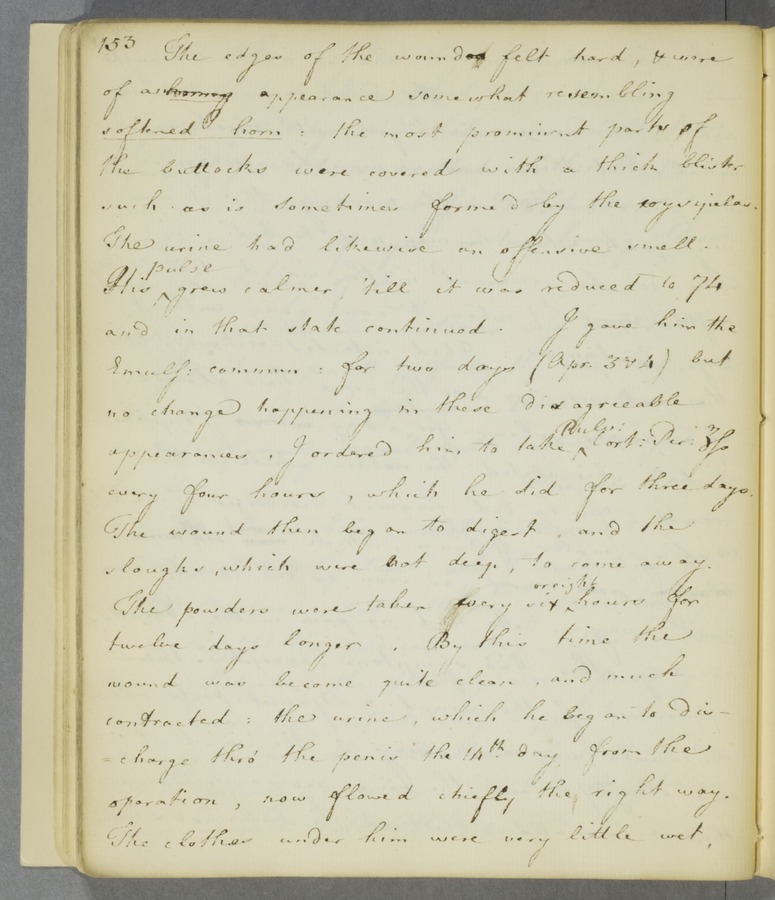 153 The edges of the wound felt hard, & were
of a horney appearance somewhat resembling
softened horn: the most prominent parts of
the buttocks were covered with a thick blister
such as is sometimes formed by the erysipelas.
The urine had likewise an offensive smell.
His pulse grew calmer, 'till it was reduced to 74
and in that state continued. I gave him the
Emuls: commun: for two days (Apr. 3 & 4) but
no change happening in these disagreeable
appearances, I ordered him to take Pulv: Cort: Per: ʒſs
every four hours, which he did for three days.
The wound then began to digest, and the
sloughs, which were not deep, to come away.
The powders were taken every six or eight hours for
twelve days longer. By this time the
wound was become quite clean, and much
contracted: the urine, which he began to dis-
=charge thro' the penis the 14th. day from the
operation, now flowed chiefly the right way.
The clothes under him were very little wet,